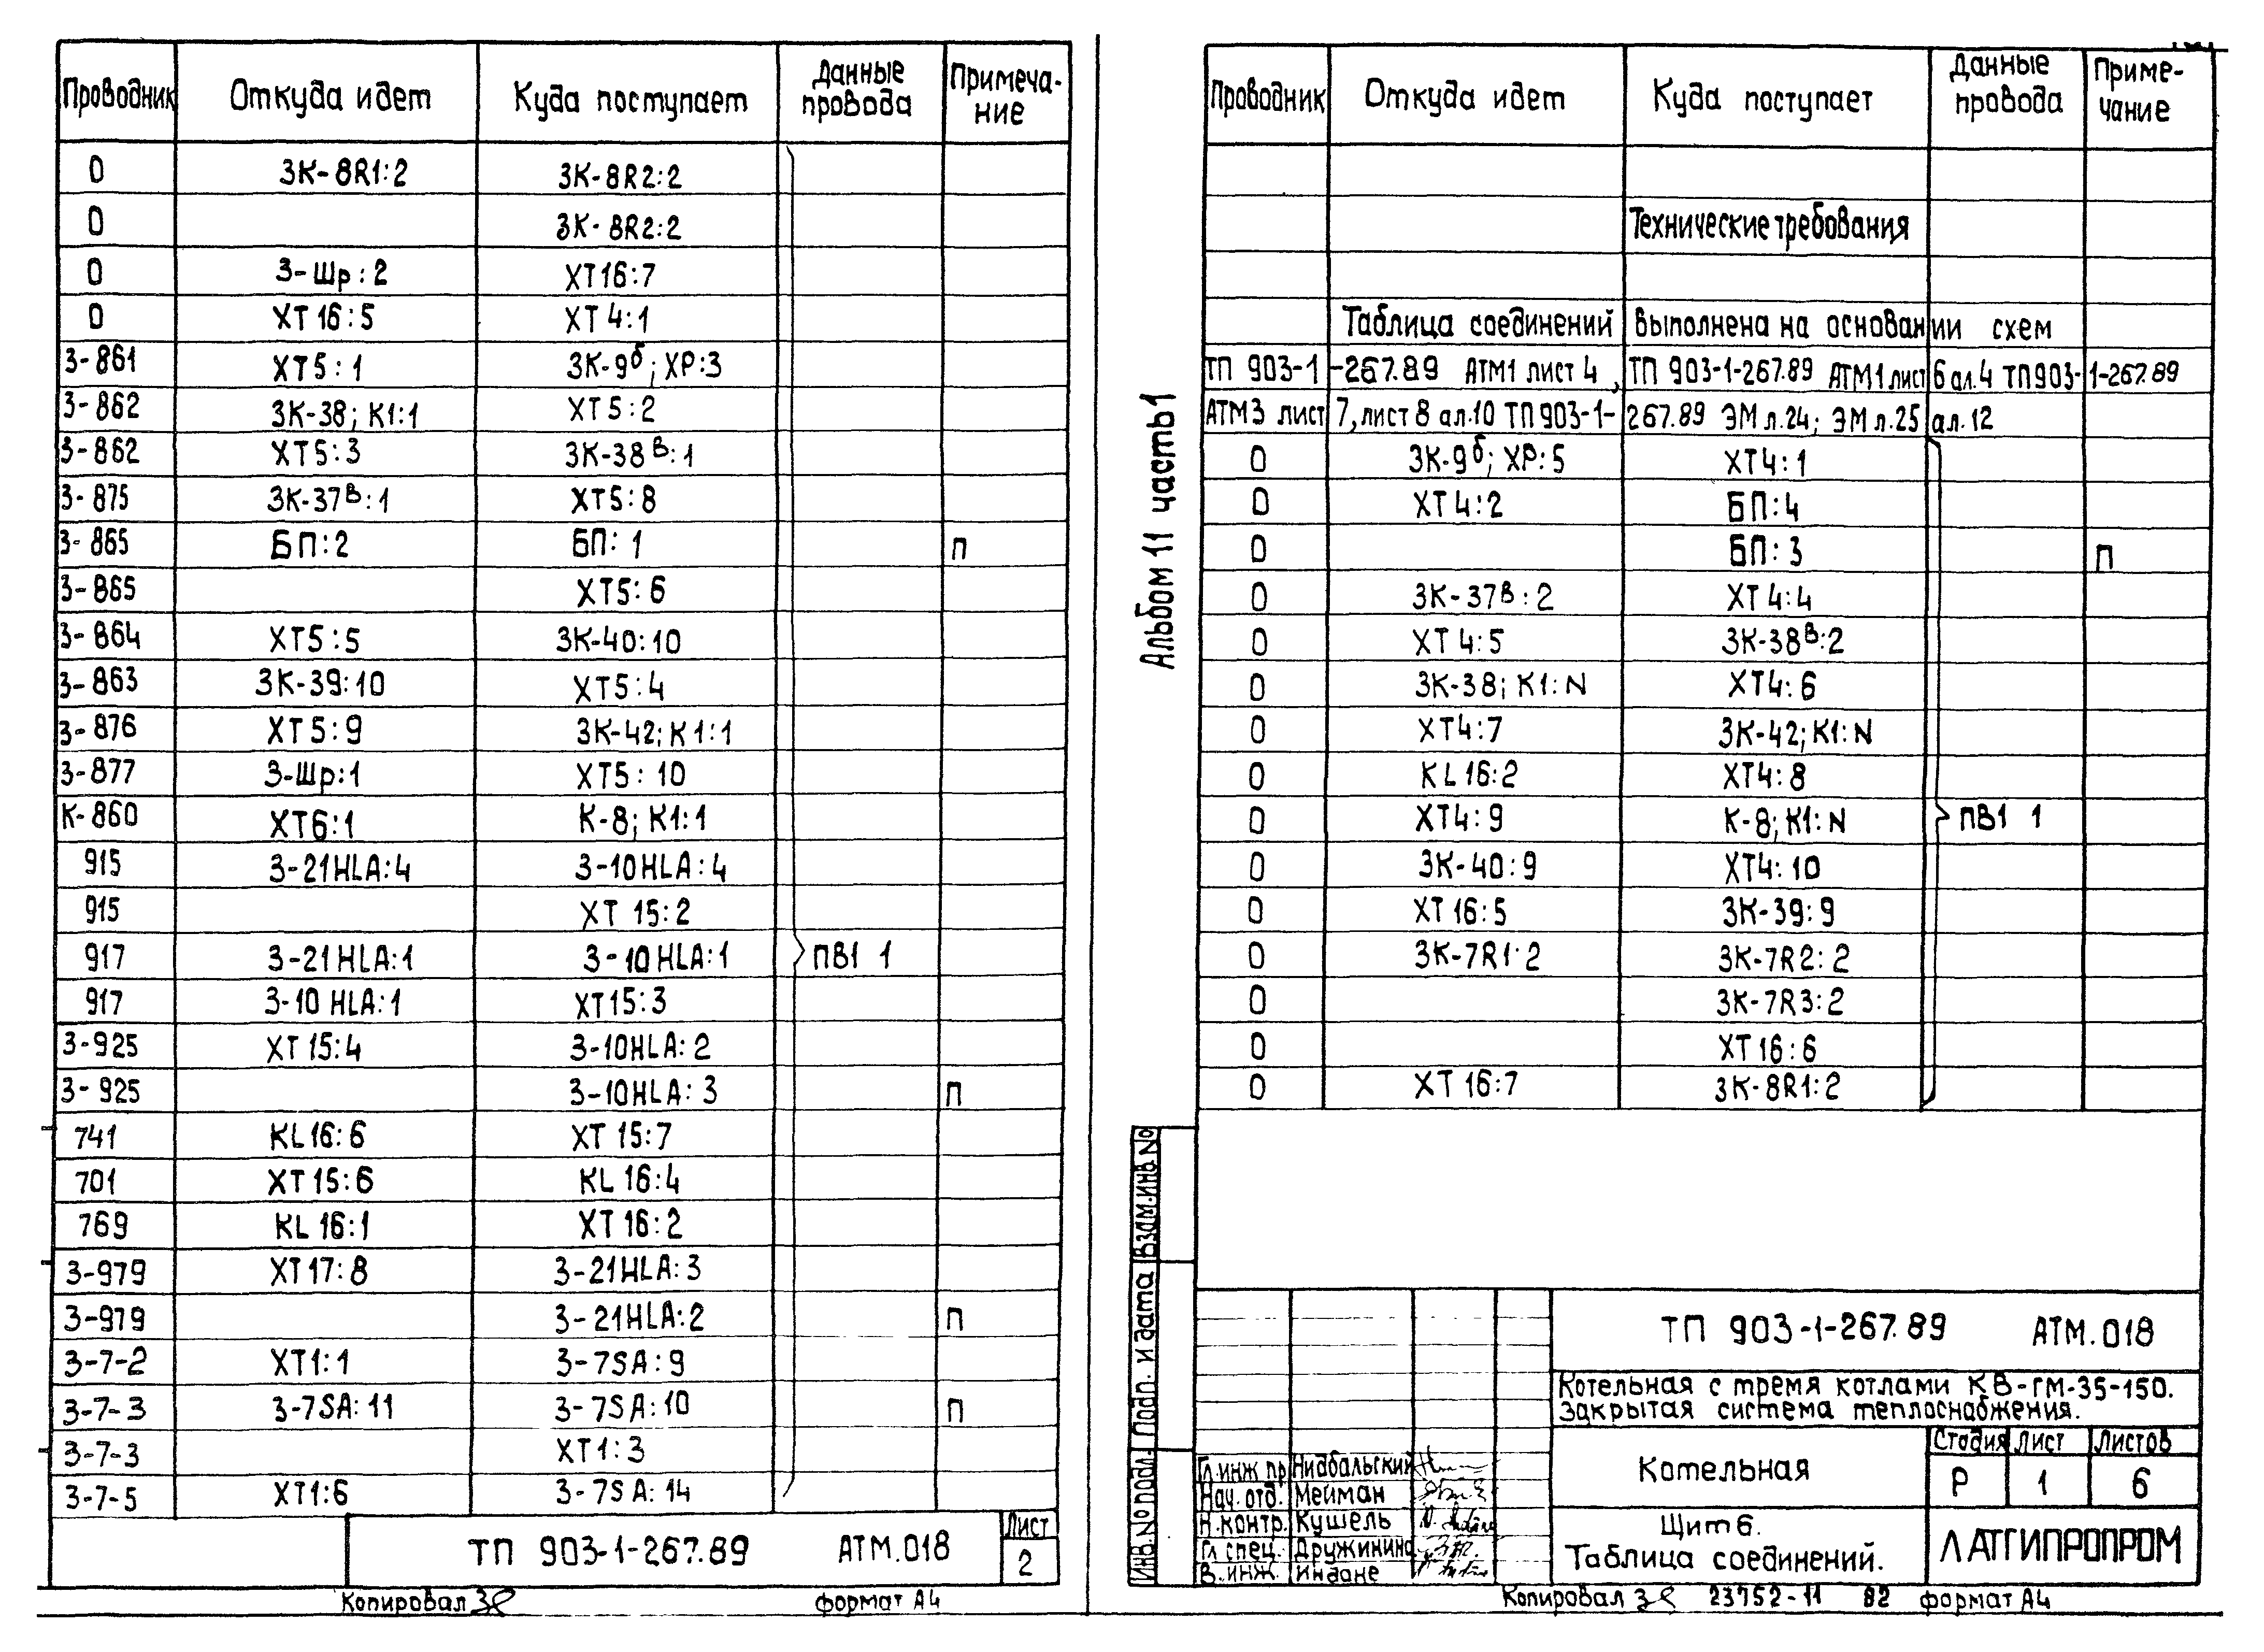 Проводник Откуда идет Куда поступает Данные провода Примеча-ние
0 3К-8R1:2 3К-8R2:2
0 3К-8R2:2
0 3-Шр:2 ХТ16:7
0 ХТ16:5 ХТ4:1
3-861 ХТ5:1 3К-9б; ХР:3
3-862 3К-38; К1:1 ХТ5:2
3-862 ХТ5:3 3К-38в:1
3-875 3К-37в:1 ХТ5:8
3-865 БП:2 БП:1 П
3-865 ХТ5:6
3-864 ХТ5:5 3К-40:10
3-863 3К-39:10 ХТ5:4
3-876 ХТ5:9 3К-42; К1:1
3-877 3-Шр:1 ХТ5:10
К-860 ХТ6:1 К-8; К1:1
915 3-21HLA:4 3-10HLA:4
915 ХТ 15:2
917 3-21HLA:1 3-10HLA:1 ПВ1 1
917 3-10 HLA:1 ХТ15:3
3-925 ХТ15:4 3-10HLA:2
3-925 3-10HLA:3 П
741 KL16:6 ХТ 15:7
701 ХТ15:6 KL 16:4
769 KL 16:1 ХТ 16:2
3-979 ХТ17:8 3-21HLA:3
3-979 3-21HLA:2 П
3-7-2 ХТ1:1 3-7SA:9
3-7-3 3-7SA:11 3-7SA:10 П
3-7-3 ХТ1:3
3-7-5 ХТ1:6 3-7SA:14
ТП 903-1-267.89 АТМ.018
Лист
2
Копировал формат А4
Альбом 11 часть 1
Проводник Откуда идет Куда поступает Данные провода Приме-чание
Технические требования
Таблица соединений выполнена на основании схем
ТП 903-1-267.89 АТМ1 лист 4, ТП 903-1-267.89 АТМ1 лист 6 ал.4 ТП903-1-267.89
АТМ3 лист 7, лист 8 ал.10 ТП 903-1-267.89 ЭМ л.24; ЭМ л.25 ал.12
0 3К-9б; ХР:5 ХТ4:1
0 ХТ4:2 БП:4
0 БП:3 П
0 3К-37в:2 ХТ4:4
0 ХТ4:5 3К-38в:2
0 3К-38; К1:N ХТ4:6
0 ХТ4:7 3К-42; К1:N
0 KL16:2 ХТ4:8
0 ХТ4:9 К-8; К1:N ПВ1 1
0 3К-40:9 ХТ4:10
0 ХТ16:5 3К-39:9
0 3К-7R1:2 3К-7R2:2
0 3К-7R3:2
0 ХТ16:6
0 ХТ 16:7 3К-8R1:2
Взам.инв №
Подп. и дата
Инв.№ подл.
ТП 903-1-267.89 АТМ.018
Котельная с тремя котлами КВ-ГМ-35-150.
Закрытая система теплоснабжения.
Котельная
Стадия Лист Листов
Р 1 6
Гл.инж пр Нидбальский
Нач. отд. Мейман
Н.контр. Кушель
Гл спец. Дружинина
В.инж. Индане
Щит 6.
Таблица соединений.
ЛАТГИПРОПРОМ
Копировал 23752-11 82 формат А4